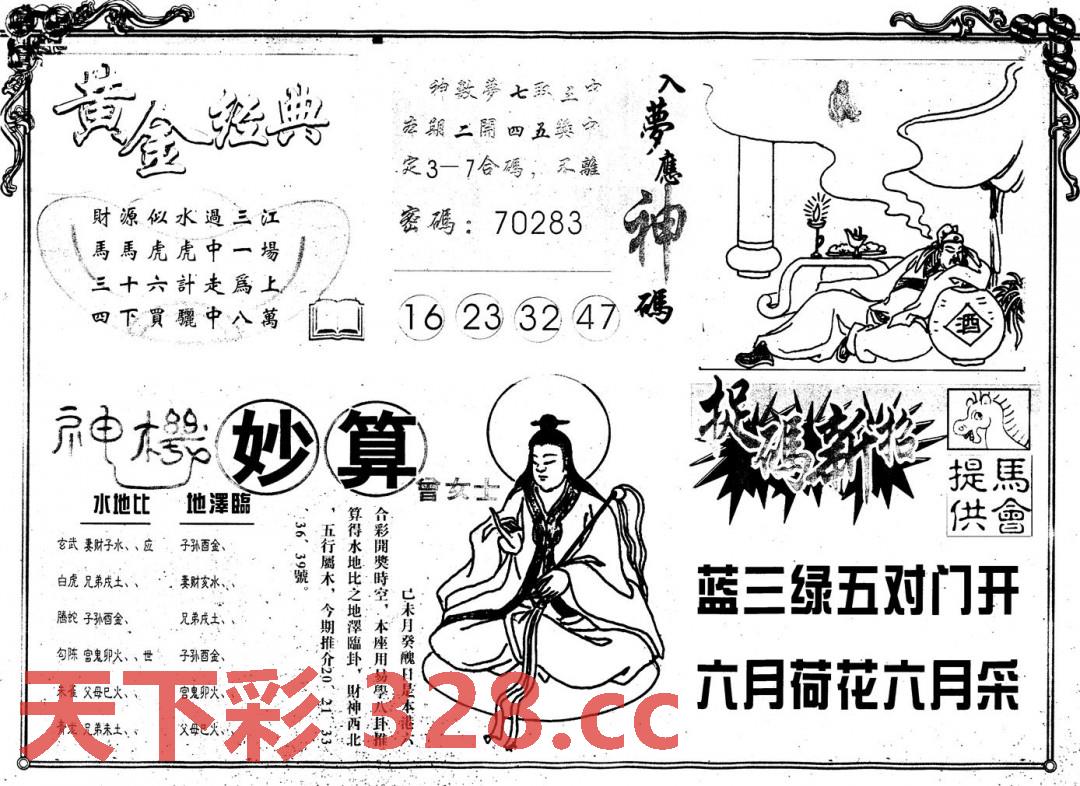 黃金經典
財源似水過三江
馬馬虎虎中一場
三十六計走爲上
四下買驪中八萬
神數夢七取三中
本期二開四五獎中
定3—7合碼，不離
密碼：70283
16 23 32 47
入夢應神碼
酒
神機妙算
曾女士
水地比 地澤臨
玄武 妻財子水、、应 子孙酉金、
白虎 兄弟戌土、 妻財亥水、、
騰蛇 子孙酉金、、 兄弟戌土、、
勾陈 官鬼卯火、、世 子孙酉金、
朱雀 父母巳火、、 官鬼卯火、
青龙 兄弟未土、、 父母巳火、
己未月癸醜日是本港六
合彩開獎時空，本座用易學八卦推
算得水地比之地澤臨卦，財神西北
，五行屬木，今期推介20、21、33
、36、39號。
捉碼新招
馬會
提供
蓝三绿五对门开
六月荷花六月采
天下彩 328.cc